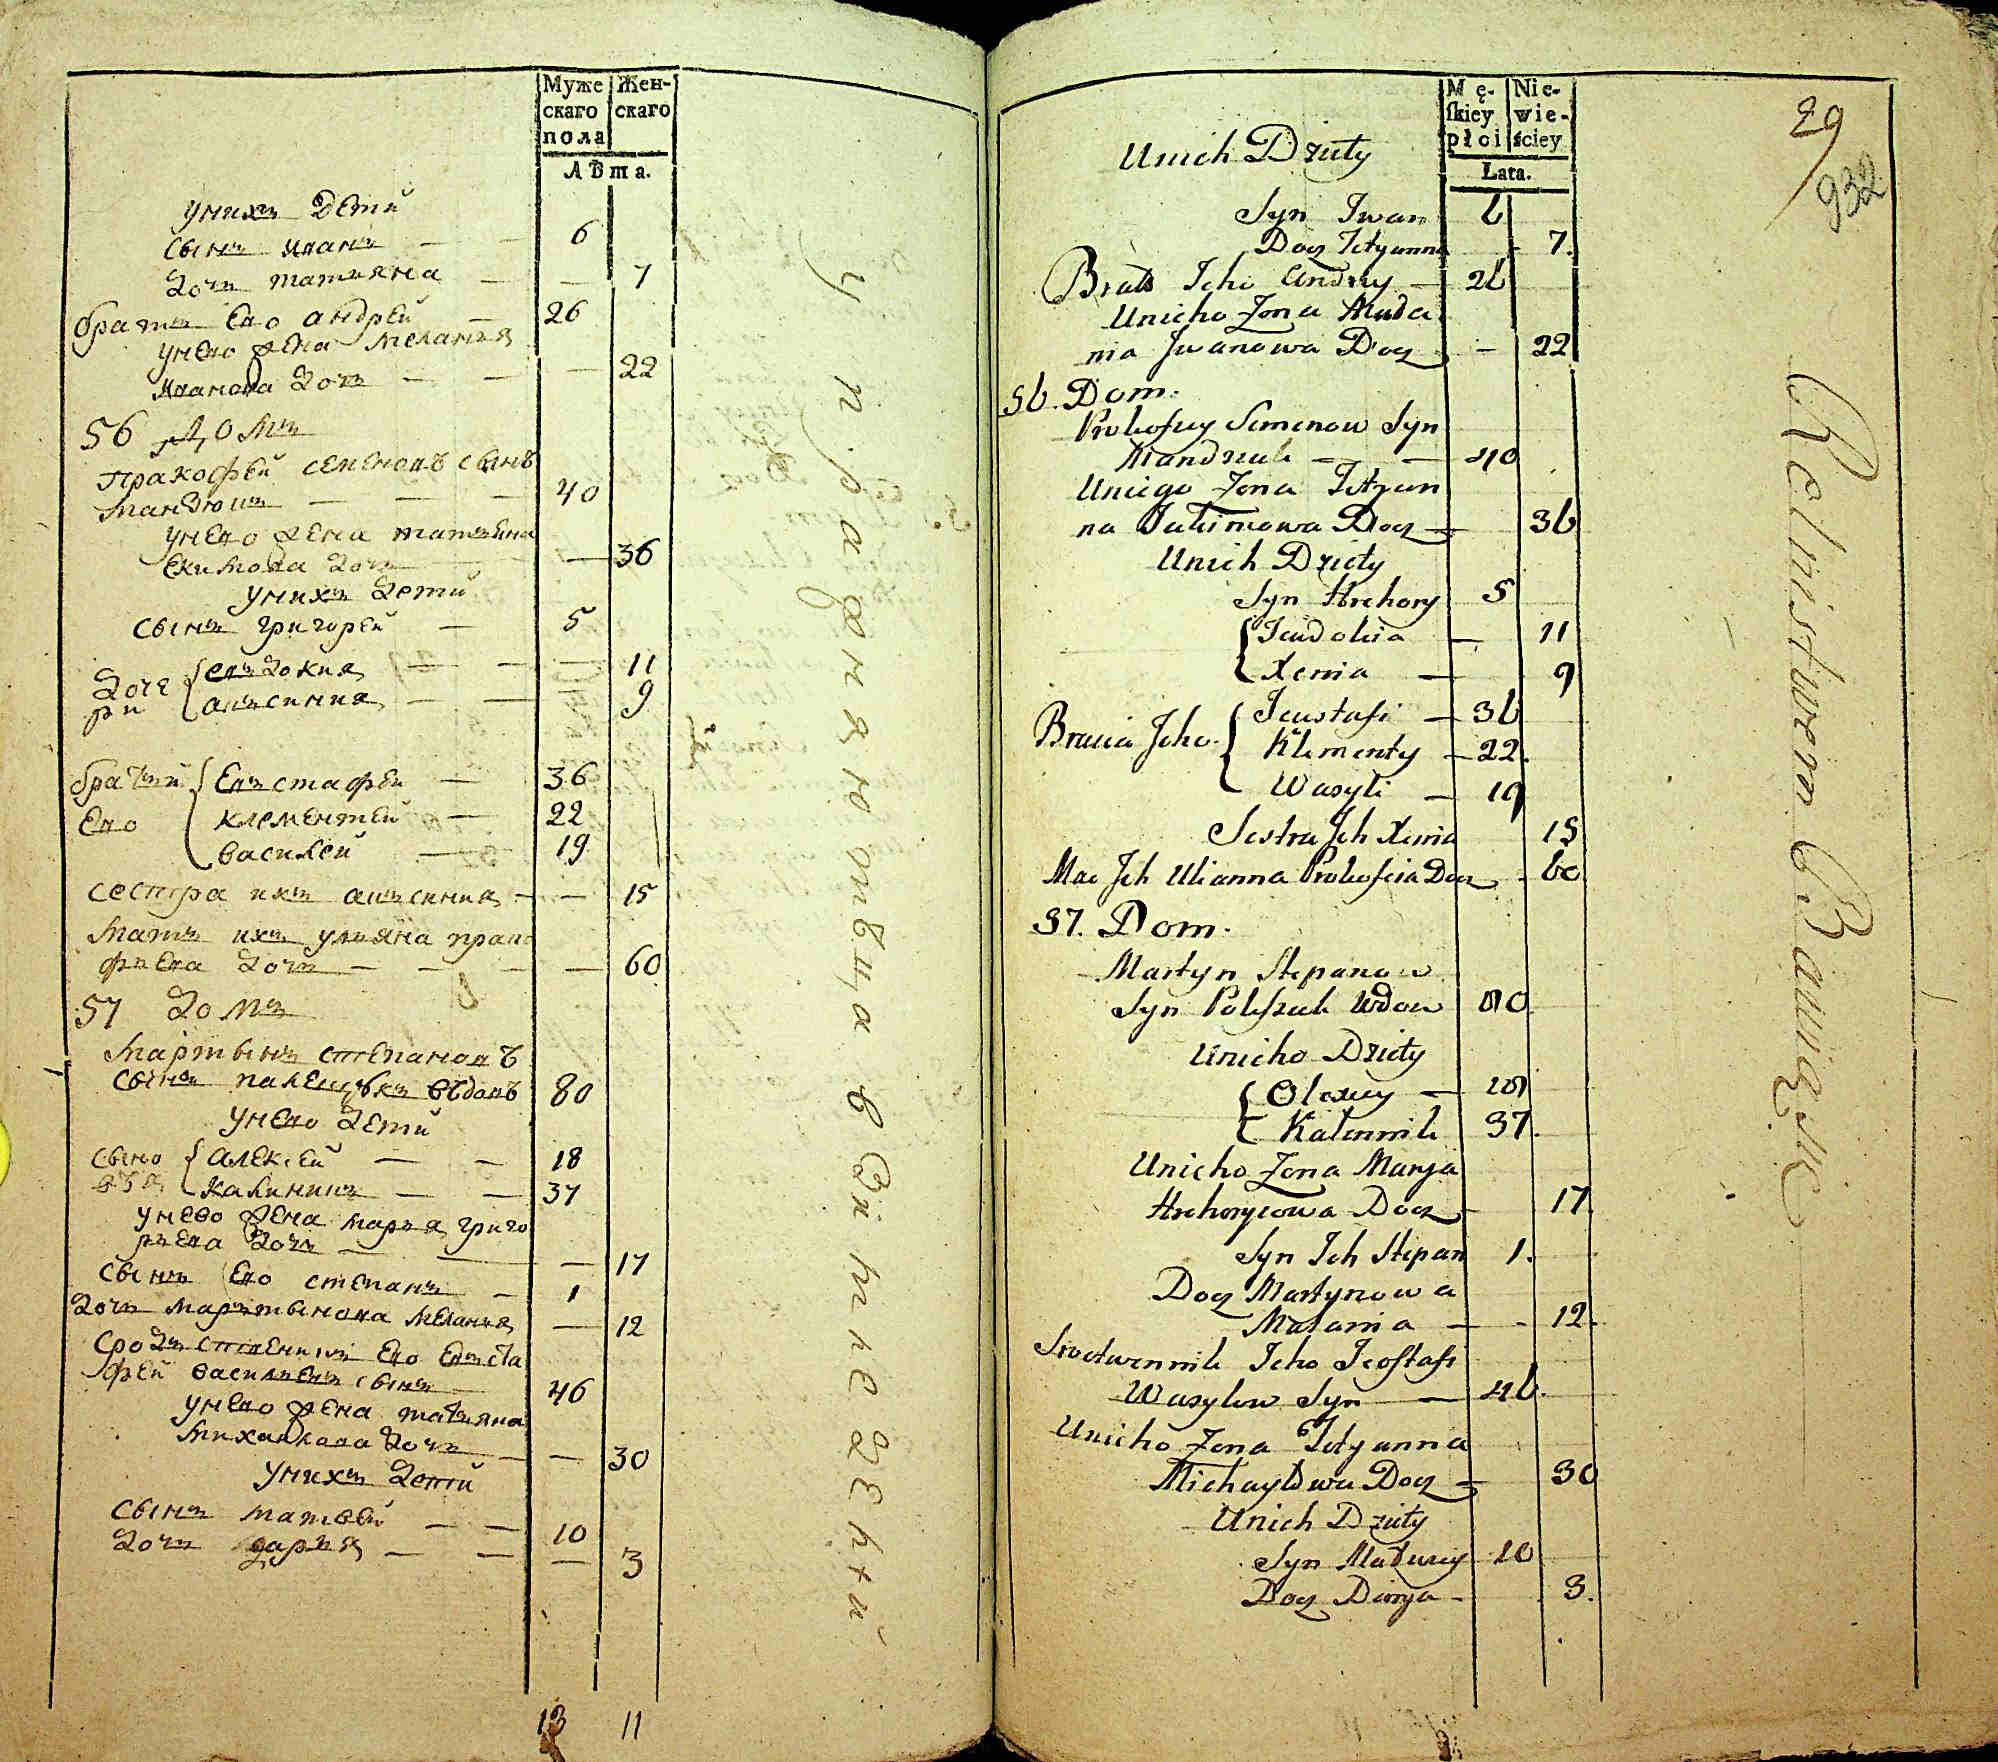 Муже Жен-
скаго скаго
пола
лѣта.
унихъ Дети
сынъ иванъ — — 6
дочь татияна — — 7
братъ Ево андрей — 26
унево жена мелания
иванова дочь — — — 22
56 Домъ
пракофей семеновъ сынъ
— — — 40
унево жена татияна
Екимова дочь — — 36
унихъ дети
сынъ григорей — 5
доче евъдокия — — — 11
ри аксиния — — 9
братий Евъстафей — 36
Ево клементей — 22
василей — 19
сестра ихъ аксиния — — 15
мать ихъ ульяна прако
фьева дочь — — — — 60
57 домъ
мартынъ степановъ
сынъ вдовъ 80
унево дети
сыно алексей — — 18
вья калиникъ — — 37
унево жена марья григо
рьева дочь — — — 17
сынъ Ево степанъ — 1
дочь мартынова мелания — 12
сродственникъ Ево Евста
фей васильевъ сынъ — 46
унево жена татияна
михайлова дочь — — 30
унихъ дети
сынъ матвей — — 10
дочь дарья — — — 3
13 11
Mę- Nie-
ſkiey wie-
płci ściey
Lata.
29
932
Unich Dziéty
Syn Iwan 6
Docz Tetyanna - 7.
Brat Jeho Andrey — 26
Unieho Zona Mała
nia Iwanowa Docz — 22
56. Dom.
Prokofiey Semenow Syn
— — 40
Uniego Zona Tetyan
na Jakimowa Docz — 36
Unich Dziety
Syn Hrehory 5
Jewdokia — 11
Xenia — 9
Bracia Jeho Jeustafi — 36
Klementy — 22.
Wasyli — 19
Sestra Jch Xenia 15
Mać Jch Ulianna Prokofeia Docz - 60
57. Dom.
Martyn Stepanow
Syn Poleszuk Wdow 80
Unieho Dziety
Olexiey — 18
Kalennik 37.
Unieho Zona Marya
Hrehoryowa Docz - 17.
Syn Jch Stepan 1.
Docz Martynowa
Małania — - 12.
Srodwennik Jeho Jeostafi
Wasylow Syn — 46.
Unieho Zona Tetyanna
Michayłowa Docz — 30
Unich Dziety
Syn Matwiey 10
Docz Darya - 3.